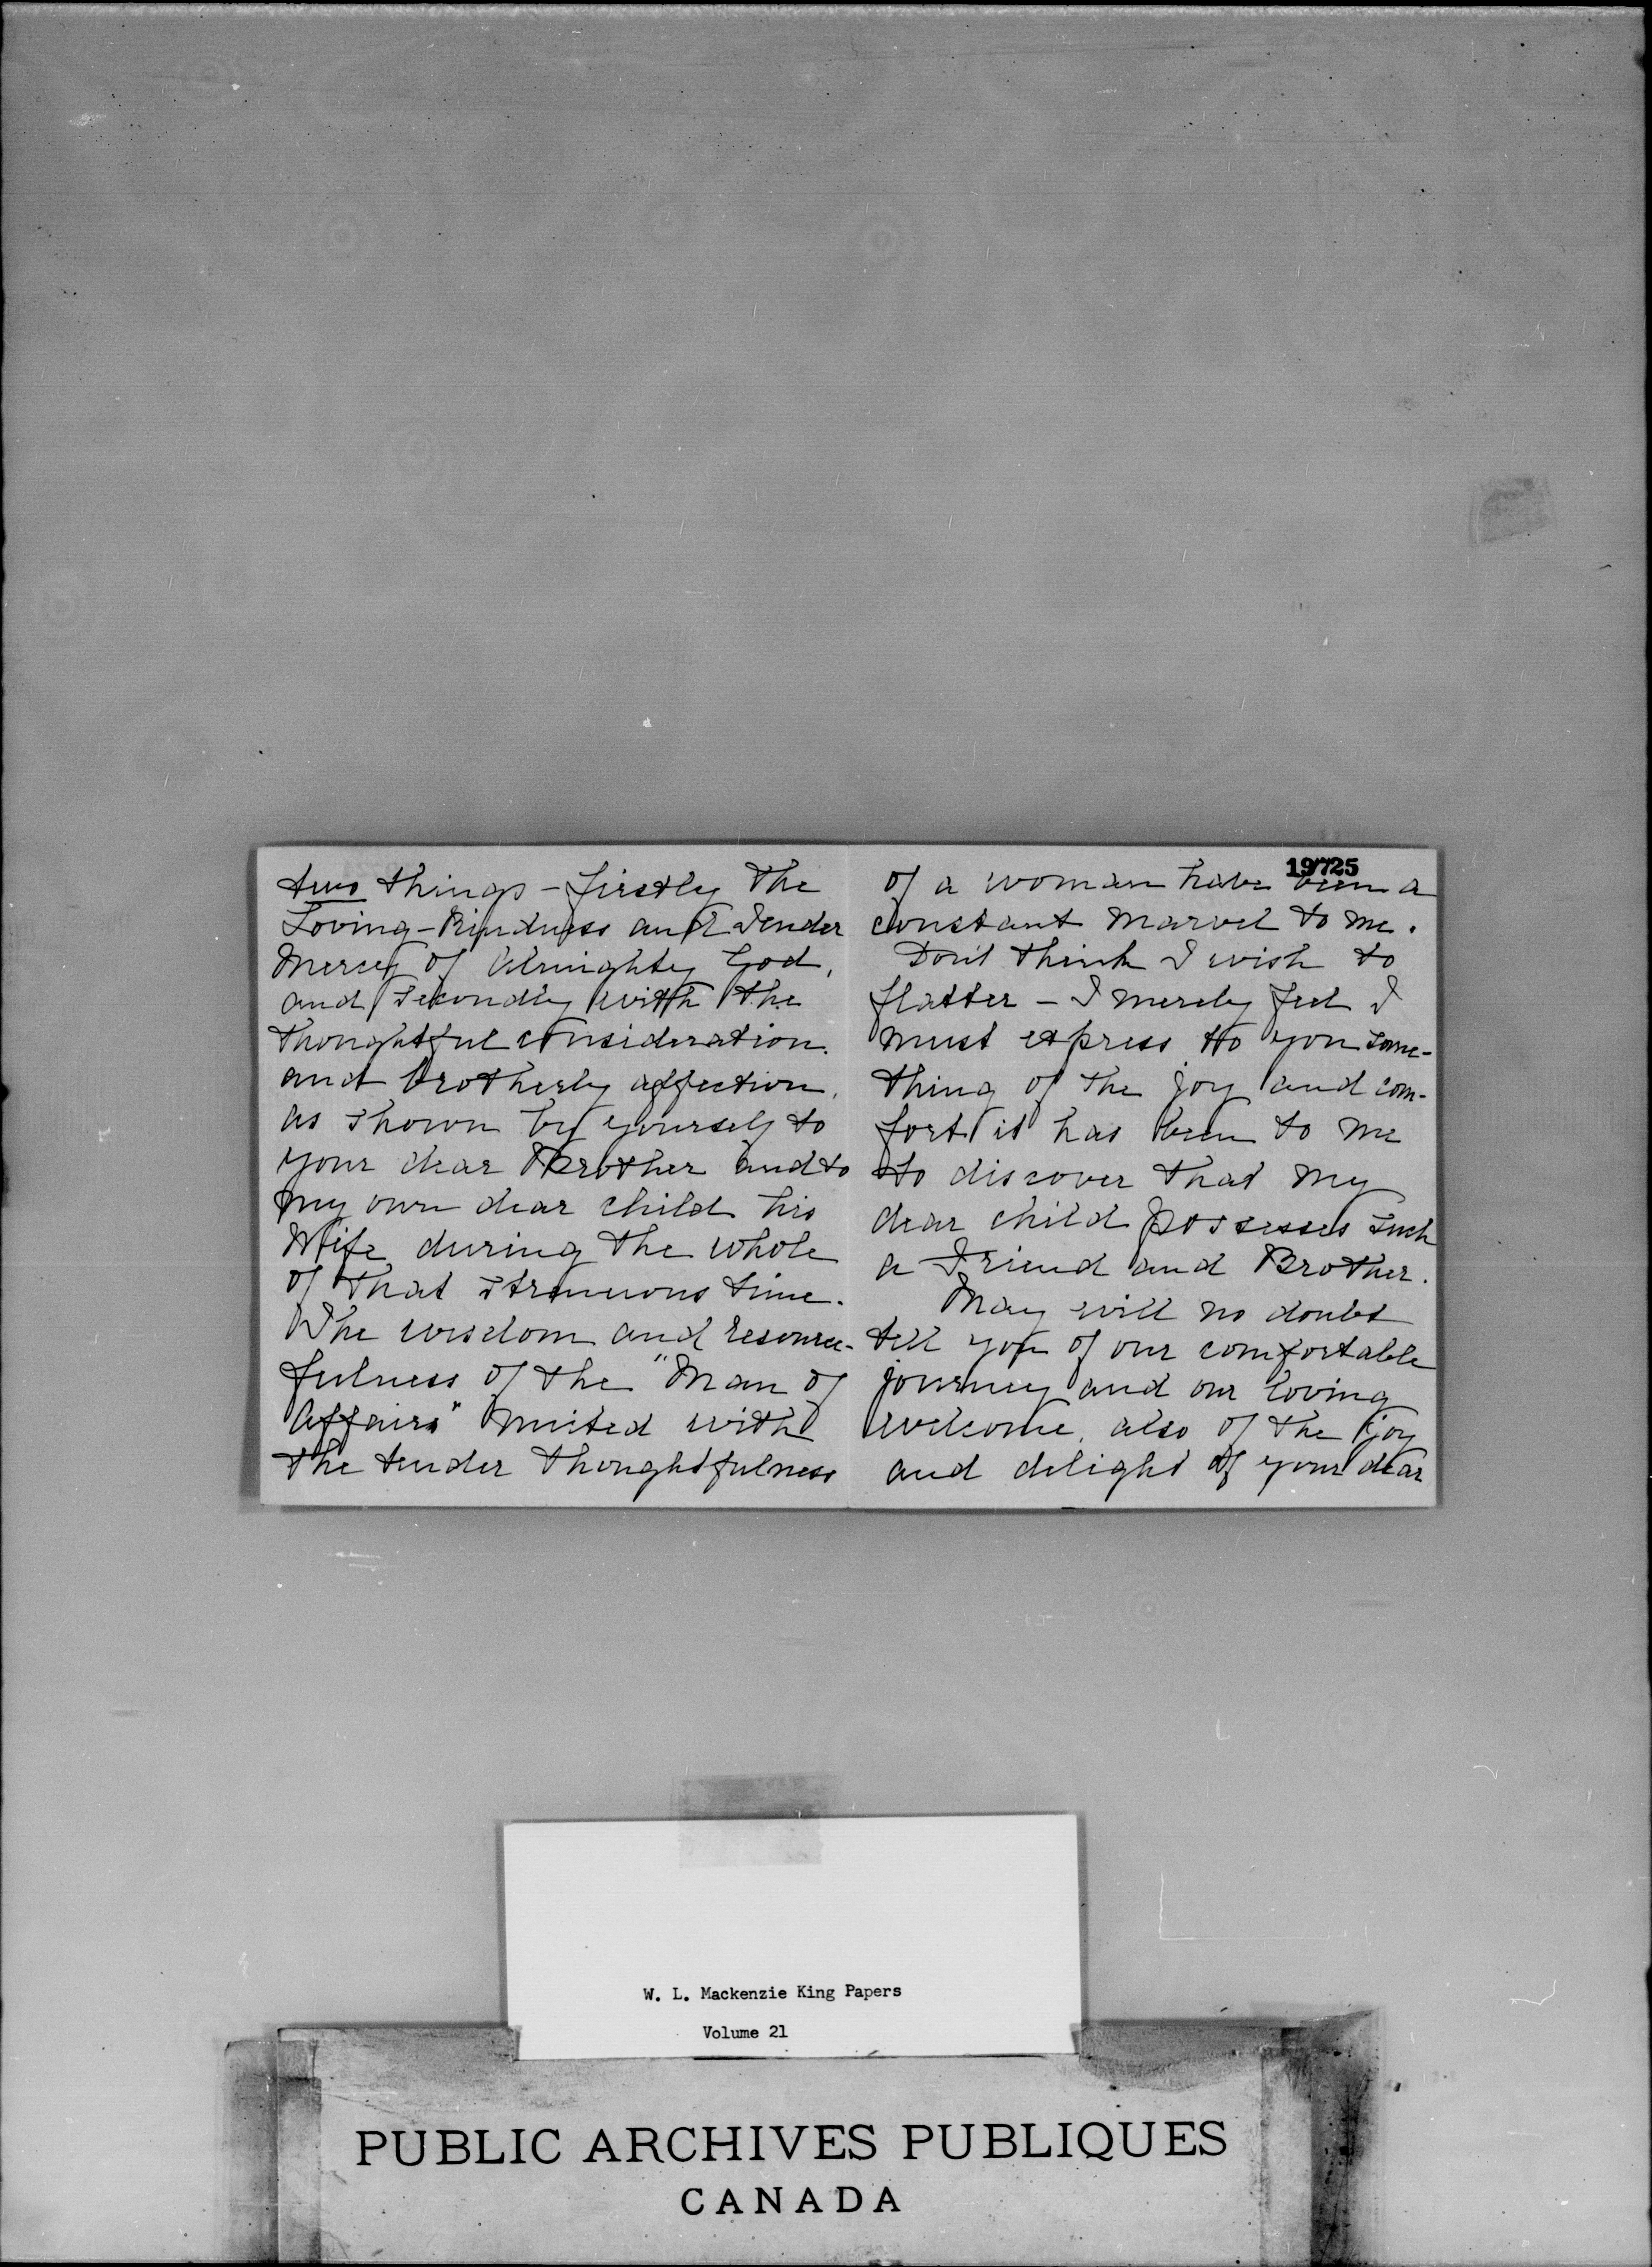 two things - firstly the
Loving-Kindness and Tender
Mercy of Almighty God,
and secondly with the
thoughtful consideration.
and brotherly affection,
as shown by yourself to
your dear Brother and to
my own dear child his
Wife during the whole
of that strenuous time.
The wisdom and resource-
fulness of the "Man of
Affairs" united with
the tender thoughtfulness
19725
of a woman have been a
constant marvel to me.
Don't think I wish to
flatter - I merely feel I
must express to you some-
thing of the joy and com-
fort it has been to me
to discover that my
dear child possesses such
a Friend and Brother.
May will no doubt
tell you of our comfortable
journey and our loving
welcome, also of the joy
and delight of your dear
W. L. Mackenzie King Papers
Volume 21
PUBLIC ARCHIVES PUBLIQUES
CANADA